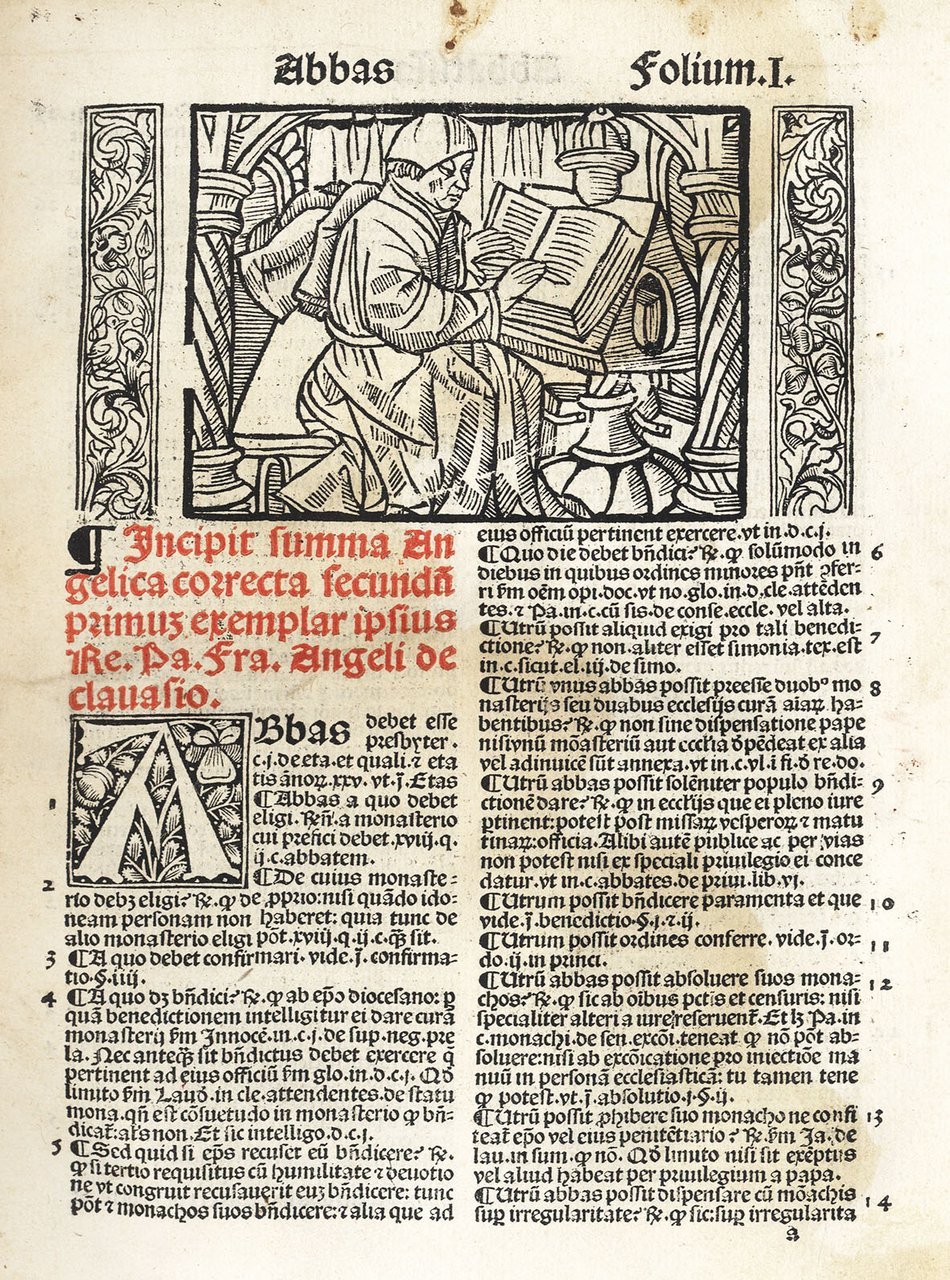 Abbas Folium.I.
¶ Incipit summa An
gelica correcta secundū
primuꝫ exemplar ipsius
Re. Pa. Fra. Angeli de
clavasio.
ABbas debet esse
presbyter.
c.j. de eta. et quali. ⁊ eta
tis ānoꝝ.xxv. vt.j̄. Etas
1 ¶Abbas a quo debet
eligi. Rn̄. a monasterio
cui prefici debet.xviij.q.
ij.c.abbatem.
2 ¶De cuius monaste⸗
rio debꝫ eligi? ℞. ꝙ de ꝓprio: nisi quādo ido⸗
neam personam non haberet: quia tunc de
alio monasterio eligi pōt.xviij.q.ij.c.qꝫ̄ sit.
3 ¶A quo debet confirmari. vide.j̄. confirma⸗
tio.§.iiij.
4 ¶A quo dꝫ bn̄dici? ℞. ꝙ ab ep̄o diocesano: ꝑ
quā benedictionem intelligitur ei dare curā
monasterij ẜm Innocē.in.c.j.de sup.neg.pre
la. Nec anteqꝫ̄ sit bn̄dictus debet exercere q̄
pertinent ad eius officiū ẜm glo.in.d.c.j. Qd̄
limito ẜm Laud̄. in cle.attendentes.de statu
mona.qn̄ est cōsuetudo in monasterio ꝙ bn̄⸗
dicat̄: al's non. Et sic intelligo.d.c.j.
5 ¶Sed quid si ep̄s recuset eū bn̄dicere? ℞.
ꝙ si tertio requisitus cū humilitate ⁊ deuotio
ne vt congruit recusauerit euꝫ bn̄dicere: tunc
pōt ⁊ monachos suos bn̄dicere: ⁊ alia que ad
eius officiū pertinent exercere.vt in.d.c.j.
¶Quo die debet bn̄dici? ℞. ꝙ solūmodo in 6
diebus in quibus ordines minores pn̄t ꝯfer⸗
ri ẜm oēm opi.doc.vt no.glo.in.d.cle.attēden
tes.⁊ Pa.in.c.cū sis.de conse.eccle.vel alta.
¶Utrū possit aliquid exigi pro tali benedi⸗ 7
ctione? ℞. ꝙ non aliter esset simonia.tex.est
in.c.sicut.el.iij.de simo.
¶Utrū vnus abbas possit preesse duobꝰ mo 8
nasterijs seu duabus ecclesijs curā aiaꝝ ha⸗
bentibus? ℞. ꝙ non sine dispensatione pape
nisi vnū mōasteriū aut ecclia dēpēdeat ex alia
vel adinuicē sūt annexa.vt in.c.vl.ī fi.d̄ re.do.
¶Utrū abbas possit solēniter populo bn̄di⸗ 9
ctionē dare? ℞. ꝙ in eccl'ijs que ei pleno iure
ꝑtinent: potest post missaꝝ vesperoꝝ ⁊ matu
tinaꝝ: officia. Alibi autē publice ac per vias
non potest nisi ex speciali priuilegio ei conce
datur.vt in.c.abbates.de priui.lib.vj.
¶Utrum possit bn̄dicere paramenta et que 10
vide.j̄.benedictio.§.j.⁊.ij.
¶Utrum possit ordines conferre.vide.j̄.or⸗ 11
do.ij.in princi.
¶Utrū abbas possit absoluere suos mona⸗ 12
chos? ℞. ꝙ sic ab oībus pctīs et censuris: nisi
specialiter alteri a iure reseruent̄. Et lꝫ Pa.in
c.monachi.de sen.excōi.teneat ꝙ nō pōt ab⸗
soluere: nisi ab excōicatione pro iniectiōe ma
nuū in personā ecclesiasticā: tu tamen tene
ꝙ potest.vt.j̄.absolutio.j.§.ij.
¶Utrū possit ꝓhibere suo monacho ne confi 13
teat̄ ep̄o vel eius penitētiario? ℞. ẜm Ja.de
lau.in sum.ꝙ nō. Qd̄ limito nisi sit exēptus
vel aliud habeat per priuilegium a papa.
¶Utrū abbas possit dispensare cū mōachis 14
suꝑ irregularitate? ℞. ꝙ sic: suꝑ irregularita
a